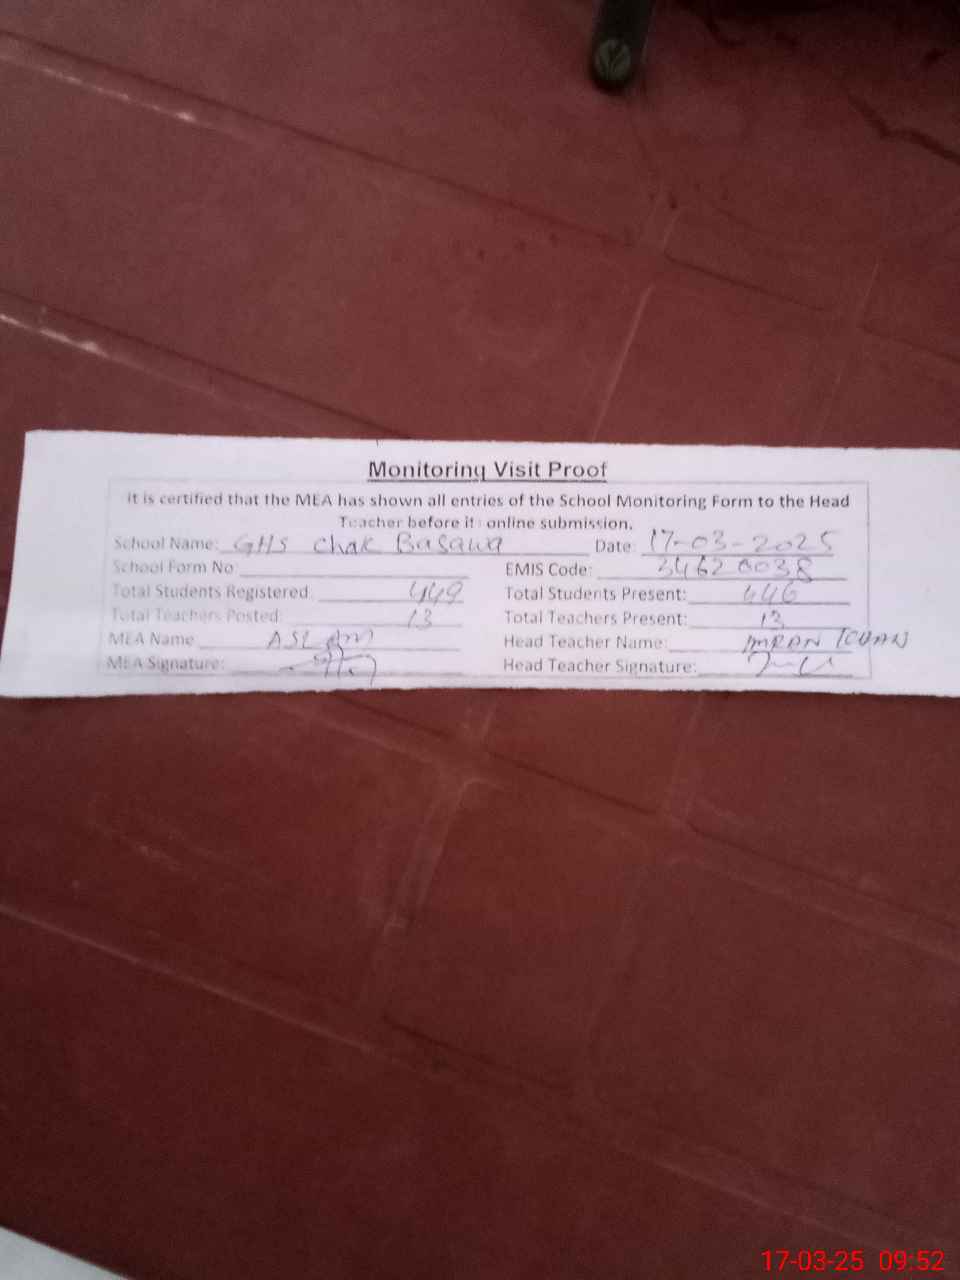 Monitoring Visit Proof
It is certified that the MEA has shown all entries of the School Monitoring Form to the Head
Teacher before its online submission.
School Name: GHS Chak Basawa Date: 17-03-2025
School Form No EMIS Code: 34620038
Total Students Registered 449 Total Students Present: 446
Total Teachers Posted: 13 Total Teachers Present: 13
MEA Name ASLAM Head Teacher Name: IMRAN KHAN
MEA Signature: Head Teacher Signature:
17-03-25 09:52